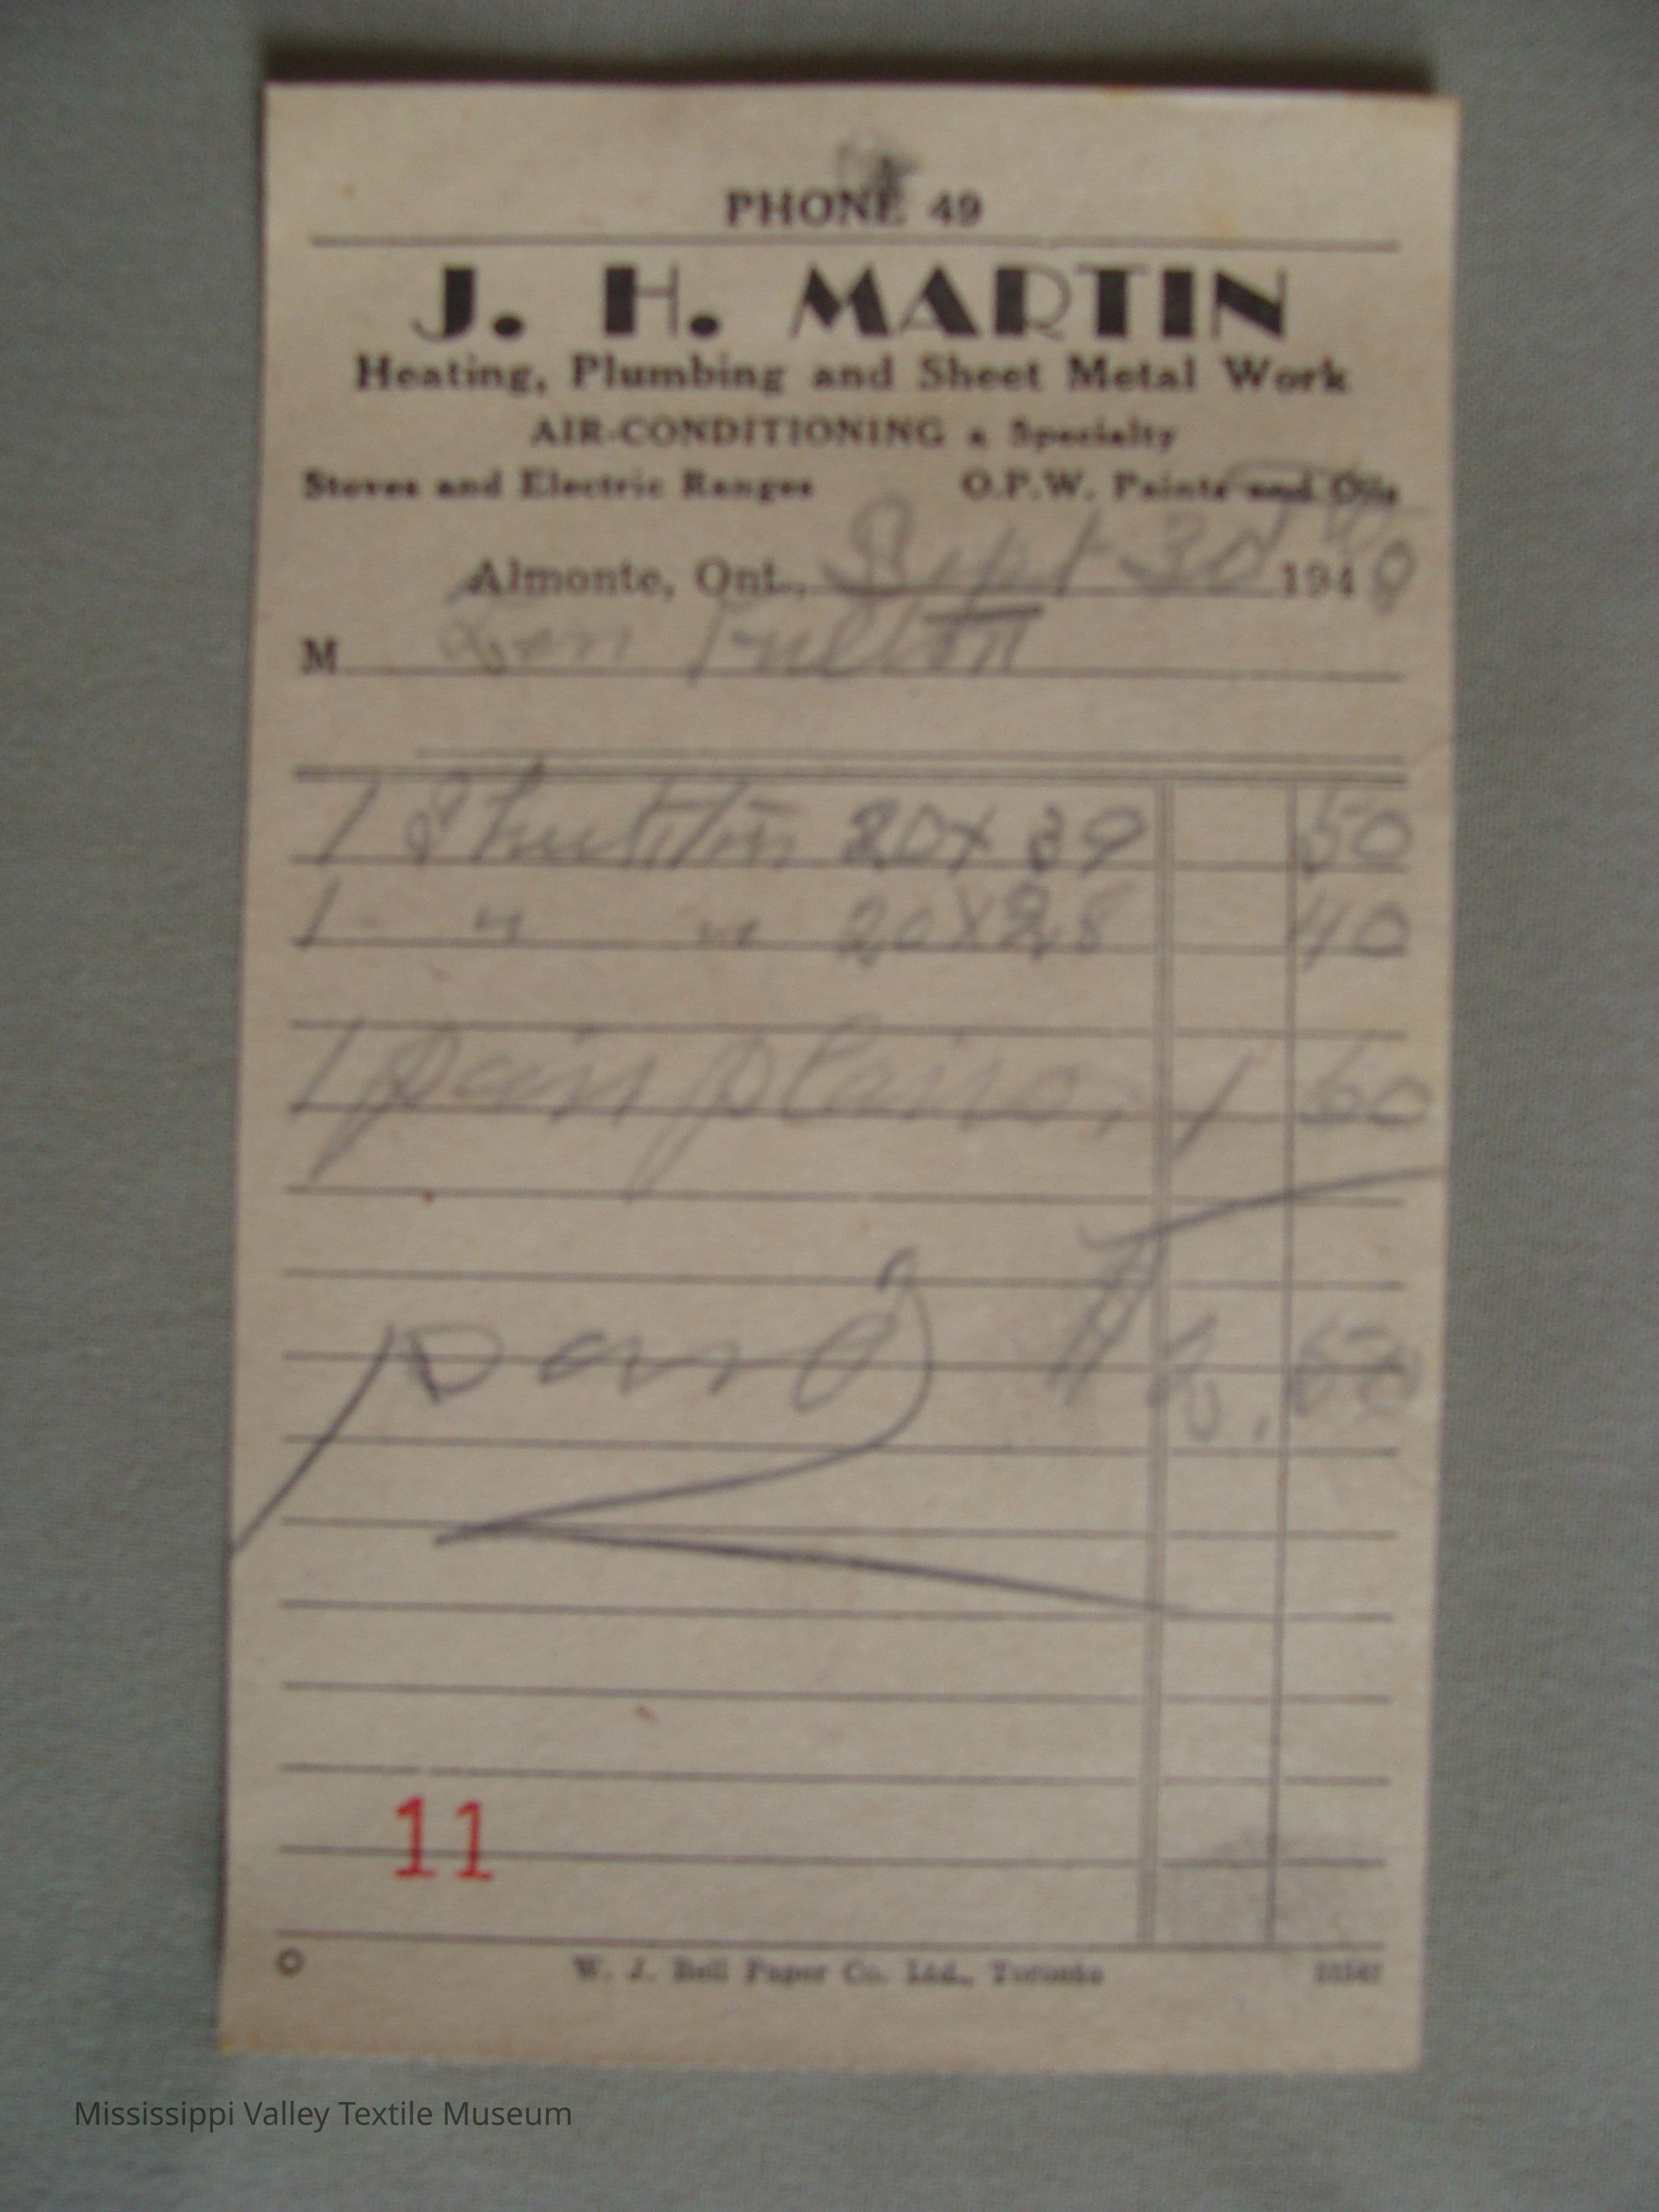 PHONE 49
J. H. MARTIN
Heating, Plumbing and Sheet Metal Work
AIR-CONDITIONING a Specialty
Stoves and Electric Ranges O.P.W. Paints and Oils
Almonte, Ont., Sept 30 194
M Fulton
1 20 x 39 50
1 " " 20 x 28 40
1 pair pliers. 1 60
paid
11
W. J. Bell Paper Co. Ltd., Toronto
Mississippi Valley Textile Museum